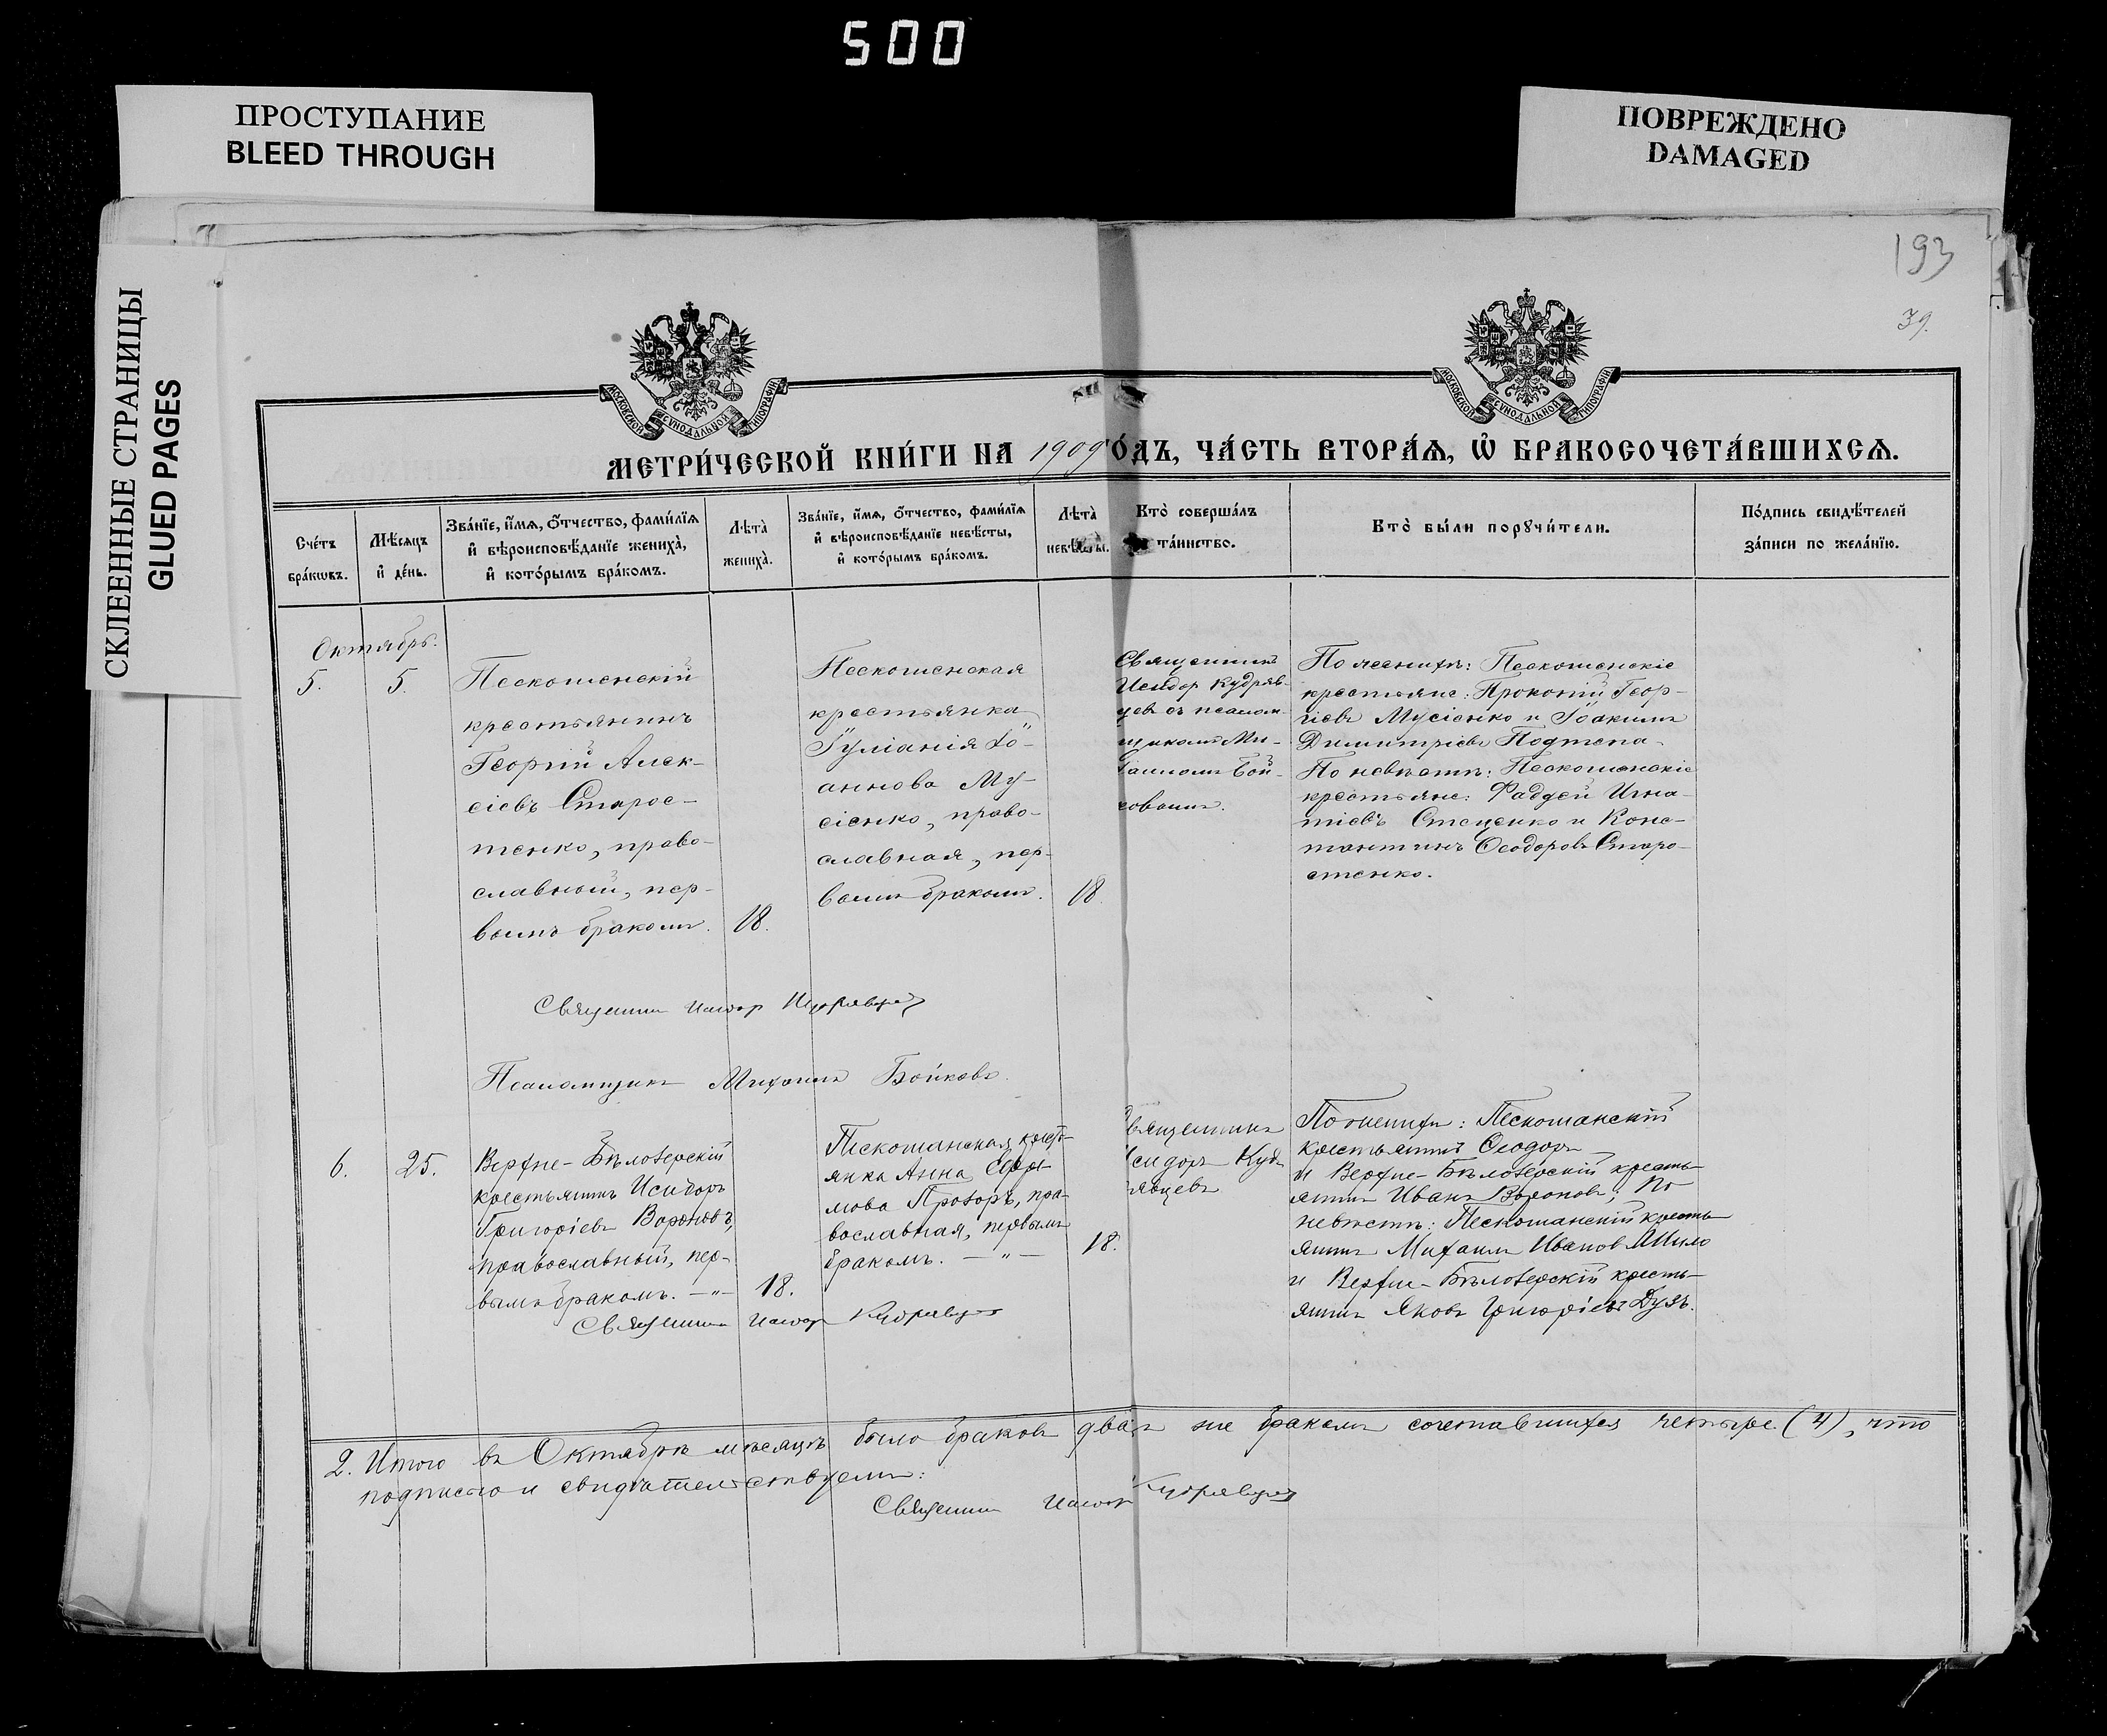 500
ПРОСТУПАНИЕ
BLEED THROUGH
ПОВРЕЖДЕНО
DAMAGED
СКЛЕЕННЫЕ СТРАНИЦЫ
GLUED PAGES
193
39.
МОСКОВСКОЙ СУНОДАЛЬНОЙ ТИПОГРАФІИ
МОСКОВСКОЙ СУНОДАЛЬНОЙ ТИПОГРАФІИ
МЕТРИ́ЧЕСКОЙ КНИ́ГИ НА 1909 ГО́ДЪ, ЧА́СТЬ ВТОРА́Ѧ, Ѡ҆ БРАКОСОЧЕТА́ВШИХСѦ.
Сче́тъ
бра́кѡвъ.
Мѣ́сѧцъ
и҆ де́нь.
Зва́нїе, и҆́мѧ, ѻ҆́тчество, фами́лїѧ
и҆ вѣроисповѣ́данїе жениха̀,
и҆ кото́рымъ бра́комъ.
Лѣта̀
жениха̀.
Зва́нїе, и҆́мѧ, ѻ҆́тчество, фами́лїѧ
и҆ вѣроисповѣ́данїе невѣ́сты,
и҆ кото́рымъ бра́комъ.
Лѣта̀
невѣ́сты.
Кто̀ соверша́лъ
та́инство.
Кто̀ бы́ли порꙋчи́тели.
По́дпись свидѣ́телей
за́писи по жела́нїю.
Октябрь.
5.
5.
Пескошенскій
крестьянинъ
Георгій Алек-
сіевъ Старос-
тенко, право-
славный, пер-
вымъ бракомъ.
18.
Пескошенская
крестьянка
Іуліанія Іо-
аннова Му-
сіенко, право-
славная, пер-
вымъ бракомъ.
18.
Священникъ
Исидор Кудряв-
цевъ съ псалом-
щикомъ Ми-
хаиломъ Бой-
ковымъ.
По женихѣ: Пескошенскіе
крестьяне: Прокопій Геор-
гіевъ Мусіенко и Іоакимъ
Димитріевъ Подтепа.
По невѣстѣ: Пескошенскіе
крестьяне: Фаддей Игна-
тіевъ Стеценко и Конс-
тантинъ Ѳеодоровъ Старо-
стенко.
Священникъ Исидор Кудрявцев
Псаломщикъ Михаилъ Бойковъ.
6.
25.
Верхне-Бѣлозерскій
крестьянинъ Исидоръ
Григоріевъ Вороновъ,
православный, пер-
вымъ бракомъ. — " —
18.
Пескошанская крест-
янка Анна Ефре
мова Прозоръ, пра-
вославная, первымъ
бракомъ. — " —
18.
Священникъ
Исидоръ Куд
рявцевъ
По женихѣ: Пескошанскій
крестьянинъ Ѳеодоръ —
и Верхне-Бѣлозерскій кресть-
янинъ Иванъ Вороновъ; по
невѣстѣ: Пескошанскій кресть-
янинъ Михаилъ Ивановъ Шило
и Верхне-Бѣлозерскій кресть-
янинъ Яковъ Григоріевъ Дузь.
Священникъ Исидор Кудрявцев
2. Итого въ Октябрѣ мѣсяцѣ было браковъ два же бракомъ сочетавшихся четыре (4), что
подписью и свидѣтельствуемъ:
Священникъ Исидор Кудрявцев